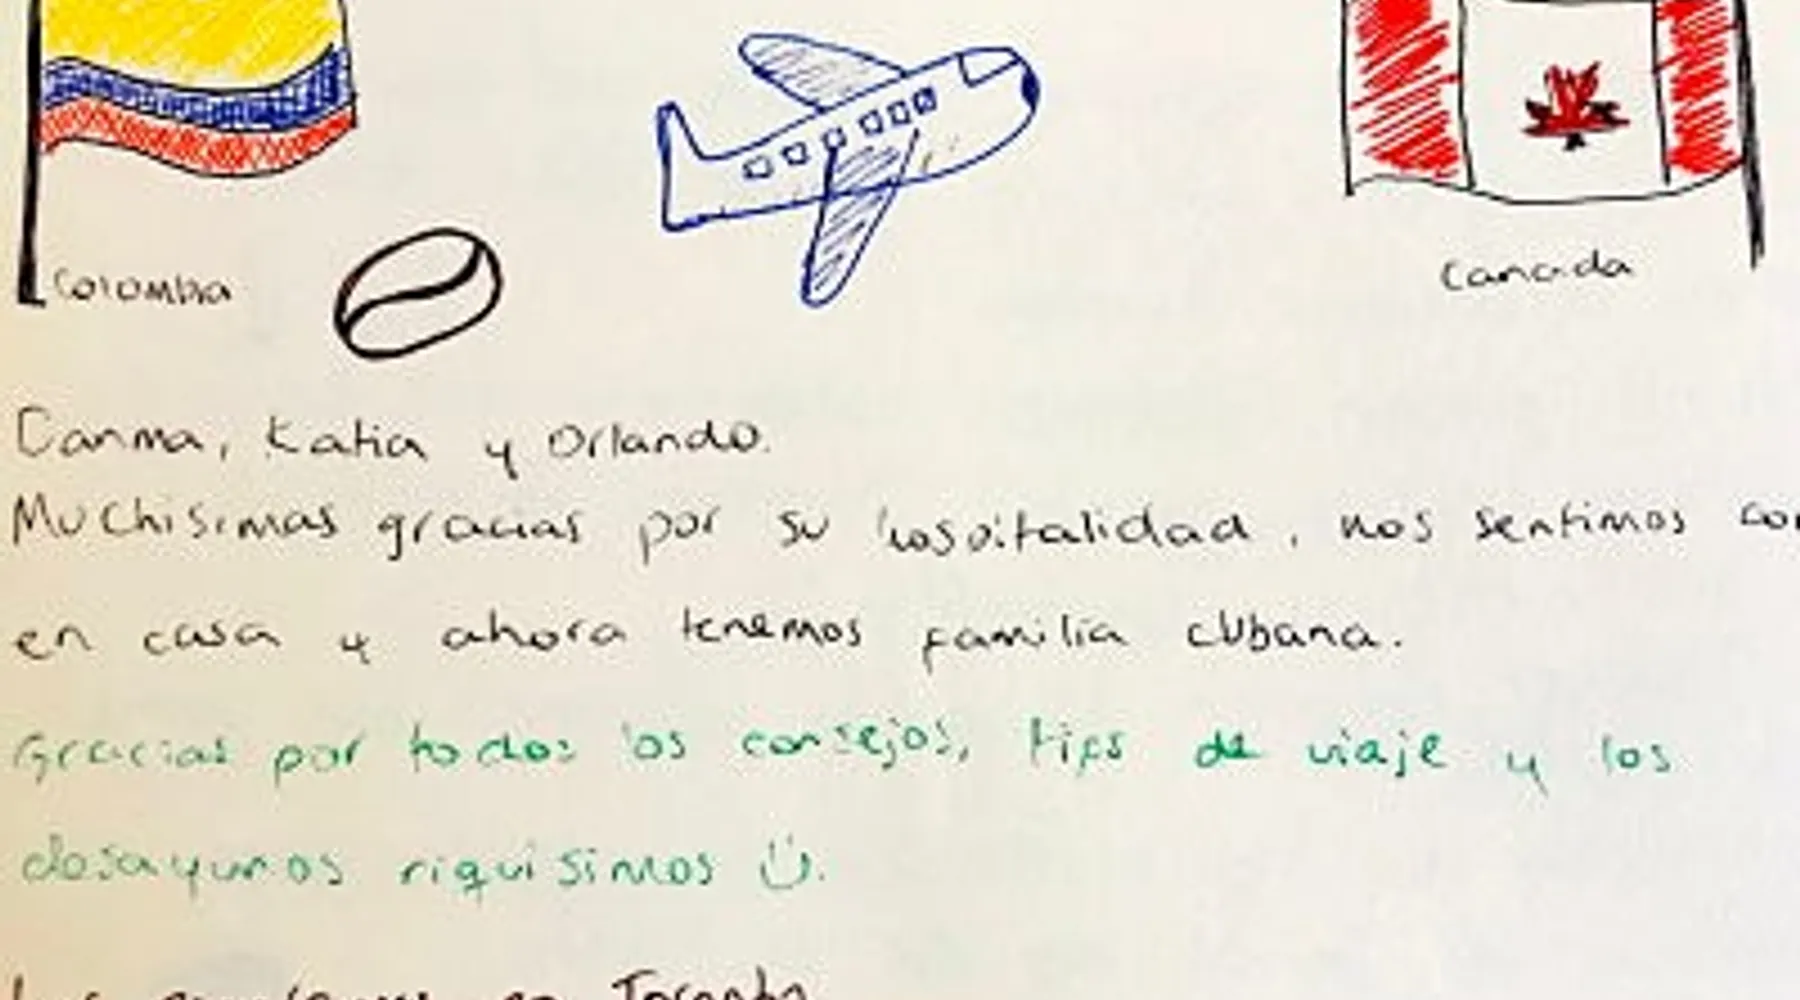 Colombia
Canada
Danma, Katia y Orlando.
Muchisimas gracias por su hospitalidad, nos sentimos
en casa y ahora tenemos familia cubana.
Gracias por todos los consejos, tips de viaje y los
desayunos riquisimos
en Toronto